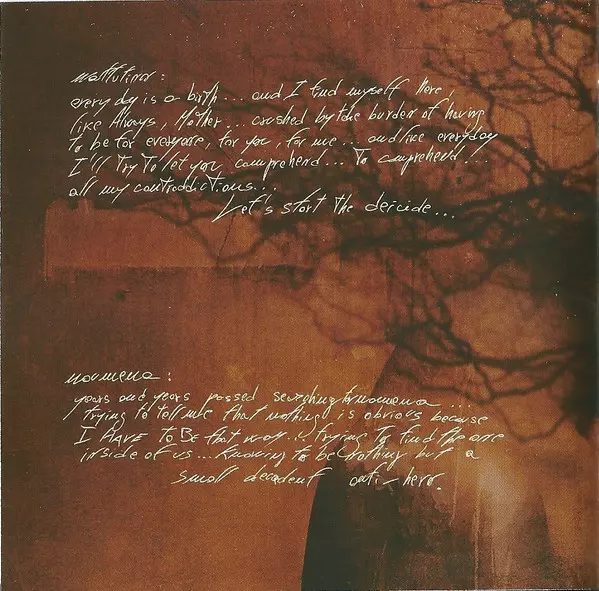 mattutino:
every day is a birth... and I find myself Here,
like Always, Mother... crushed by the burden of having
to be for everyone, for you, for me... and like everyday
I'll try to let you comprehend... to comprehend...
all my contraddictions...
Let's start the deicide...
noumena:
years and years passed searching noumena...
trying to tell me that nothing is obvious because
I HAVE TO BE that way... trying to find the one
inside of us... knowing to be nothing but a
small decadent anti-hero.